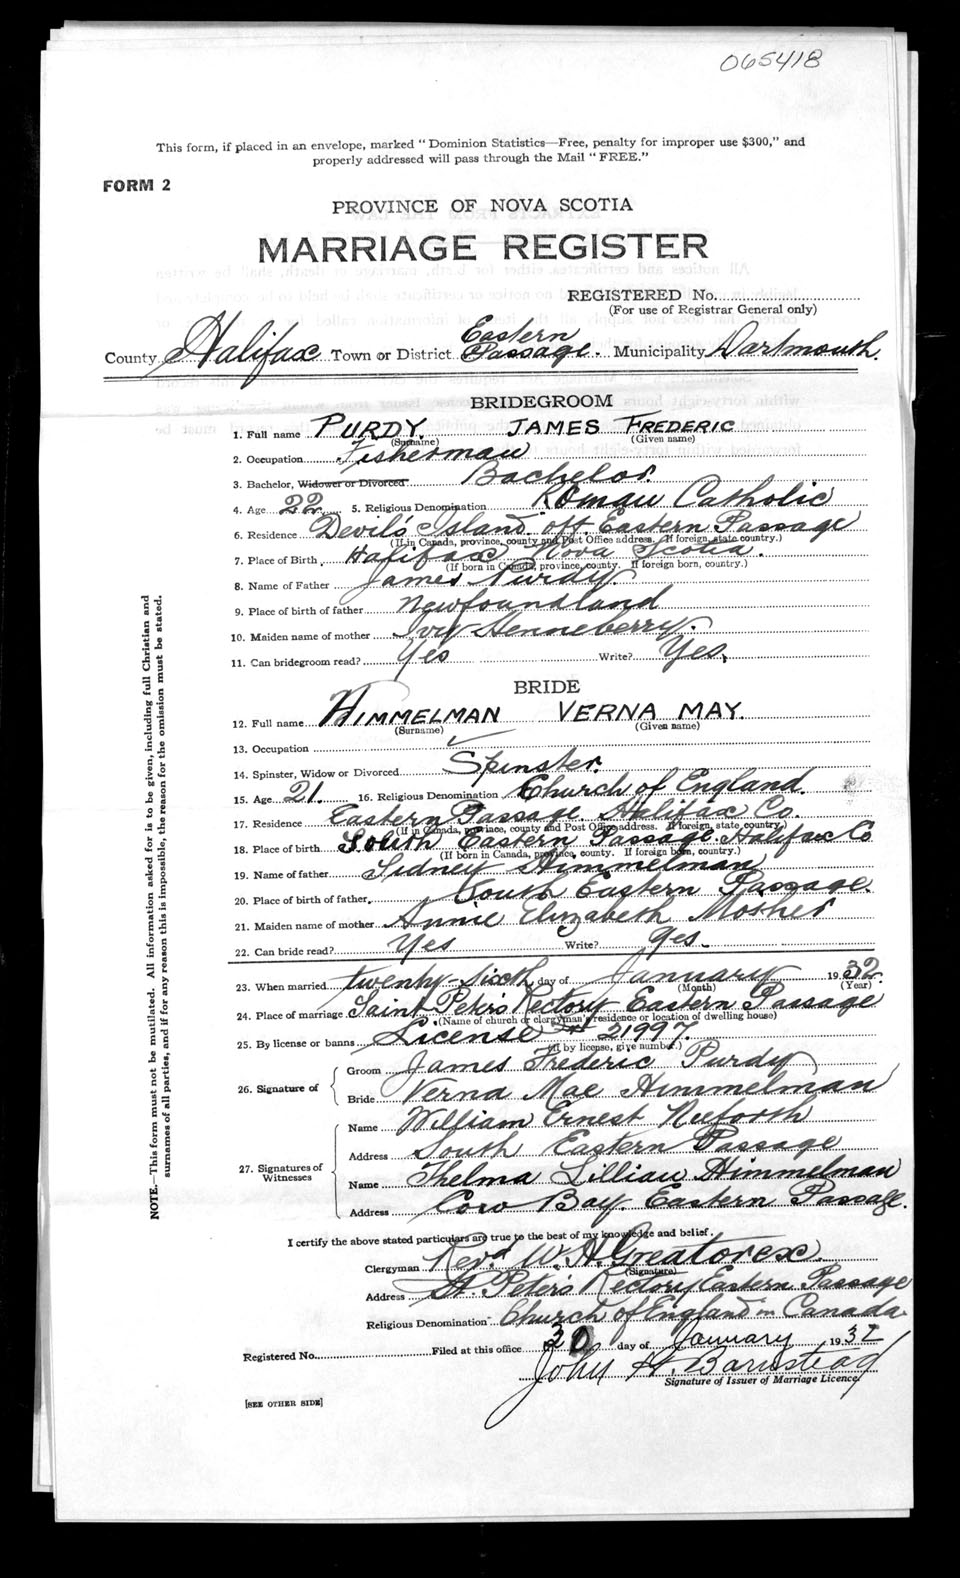 065418
This form, if placed in an envelope, marked "Dominion Statistics—Free, penalty for improper use $300," and
properly addressed will pass through the Mail "FREE."
FORM 2
PROVINCE OF NOVA SCOTIA
MARRIAGE REGISTER
REGISTERED No.
(For use of Registrar General only)
County Halifax Town or District Eastern Passage. Municipality Dartmouth.
BRIDEGROOM
1. Full name PURDY. JAMES FREDERIC
(Surname) (Given name)
2. Occupation Fisherman
3. Bachelor, Widower or Divorced Bachelor.
4. Age 22 5. Religious Denomination Roman Catholic
6. Residence Devil's Island off Eastern Passage
(If in Canada, province, county and Post Office address. If foreign, state country.)
7. Place of Birth Halifax Nova Scotia.
(If born in Canada, province, county. If foreign born, country.)
8. Name of Father James Purdy.
9. Place of birth of father Newfoundland
10. Maiden name of mother Ivy Henneberry.
11. Can bridegroom read? Yes Write? Yes.
BRIDE
12. Full name HIMMELMAN VERNA MAY.
(Surname) (Given name)
13. Occupation
14. Spinster, Widow or Divorced Spinster.
15. Age 21. 16. Religious Denomination Church of England.
17. Residence Eastern Passage. Halifax Co.
(If in Canada, province, county and Post Office address. If foreign, state country.)
18. Place of birth South Eastern Passage. Halifax Co
(If born in Canada, province, county. If foreign born, country.)
19. Name of father Sidney Himmelman
20. Place of birth of father South Eastern Passage.
21. Maiden name of mother Annie Elizabeth Mosher
22. Can bride read? Yes Write? Yes.
23. When married twenty-sixth day of January 1932
(Month) (Year)
24. Place of marriage Saint Peter's Rectory Eastern Passage
(Name of church or clergyman's residence or location of dwelling house)
25. By license or banns License # 21997.
(If by license, give number.)
26. Signature of
Groom James Frederic Purdy
Bride Verna Mae Himmelman
27. Signatures of Witnesses
Name William Ernest Neiforth
Address South Eastern Passage
Name Thelma Lillian Himmelman
Address Cow Bay. Eastern Passage.
I certify the above stated particulars are true to the best of my knowledge and belief.
Clergyman Revd W. A. Greatorex.
(Signature)
Address St. Peter's Rectory Eastern Passage
Religious Denomination Church of England in Canada.
Registered No. Filed at this office 30 day of January 1932
John H. Barnstead
Signature of Issuer of Marriage Licence
[SEE OTHER SIDE]
NOTE.—This form must not be mutilated. All information asked for is to be given, including full Christian and
surnames of all parties, and if for any reason this is impossible, the reason for the omission must be stated.